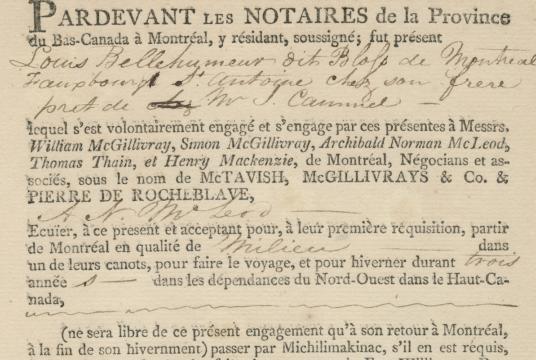 PARDEVANT LES NOTAIRES de la Province
du Bas-Canada à Montréal, y résidant, soussigné; fut présent
Louis Bellehumeur dit Bloss de Montreal
Fauxbourg St. Antoine chez son frere
pret de chez Mr
lequel s'est volontairement engagé et s'engage par ces présentes à Messrs.
William McGillivray, Simon McGillivray, Archibald Norman McLeod,
Thomas Thain, et Henry Mackenzie, de Montréal, Négocians et as-
sociés, sous le nom de McTAVISH, McGILLIVRAYS & Co. &
PIERRE DE ROCHEBLAVE,
A. N. McLeod
Ecuier, à ce present et acceptant pour, à leur première réquisition, partir
de Montréal en qualité de Milieu dans
un de leurs canots, pour faire le voyage, et pour hiverner durant trois
année s dans les dépendances du Nord-Ouest dans le Haut-Ca-
nada,
(ne sera libre de ce présent engagement qu'à son retour à Montréal,
à la fin de son hivernment) passer par Michilimakinac, s'il en est requis,